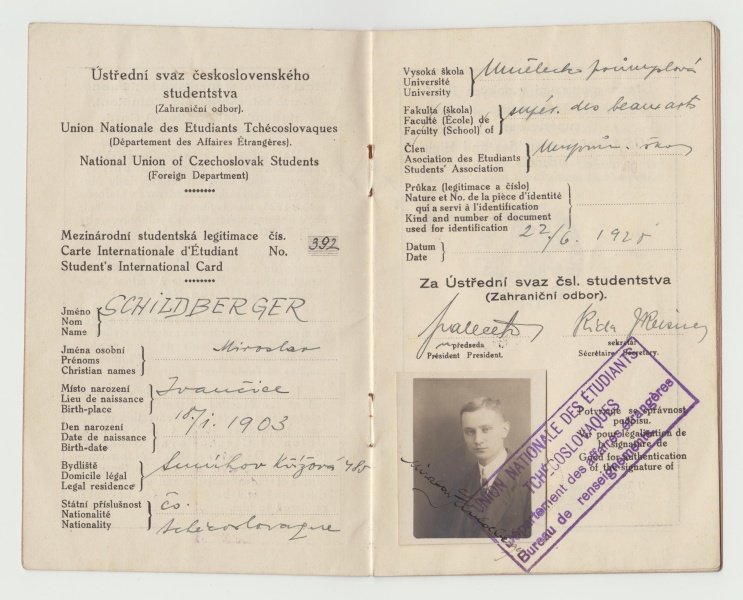 Ústřední svaz československého
studentstva
(Zahraniční odbor).
Union Nationale des Etudiants Tchécoslovaques
(Département des Affaires Étrangères).
National Union of Czechoslovak Students
(Foreign Department)
Mezinárodní studentská legitimace čís.
Carte Internationale d'Étudiant No. 392
Student's International Card
Jméno
Nom
Name
SCHILDBERGER
Jména osobní
Prénoms
Christian names
Miroslav
Místo narození
Lieu de naissance
Birth-place
Ivančice
Den narození
Date de naissance
Birth-date
18/I. 1903
Bydliště
Domicile légal
Legal residence
Smíchov Křížová
Státní příslušnost
Nationalité
Nationality
čs.
tchécoslovaque
Vysoká škola
Université
University
Umělecko průmyslová
Fakulta (škola)
Faculté (École) de
Faculty (School) of
supér. des beaux arts
Člen
Asociation des Etudiants
Students' Association
Průkaz (legitimace a číslo)
Nature et No. de la pièce d'identité
qui a servi à l'identification
Kind and number of document
used for identification
Datum
Date
22/6. 1925
Za Ústřední svaz čsl. studentstva
(Zahraniční odbor).
předseda
Président President.
sekretář
Sécrétaire Secretary.
Potvrzuje se správnost
podpisu.
pour légalisation de
la signature de
Good for authentication
of the signature of
UNION NATIONALE DES ÉTUDIANTS
TCHÉCOSLOVAQUES
Département des affaires étrangères
Bureau de renseignements
Miroslav